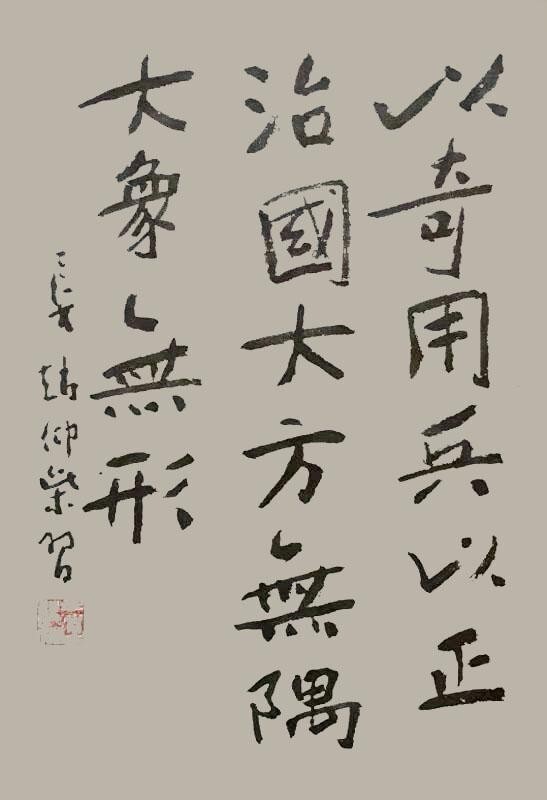 以奇用兵以正
治國大方無隅
大象無形
仰榮習